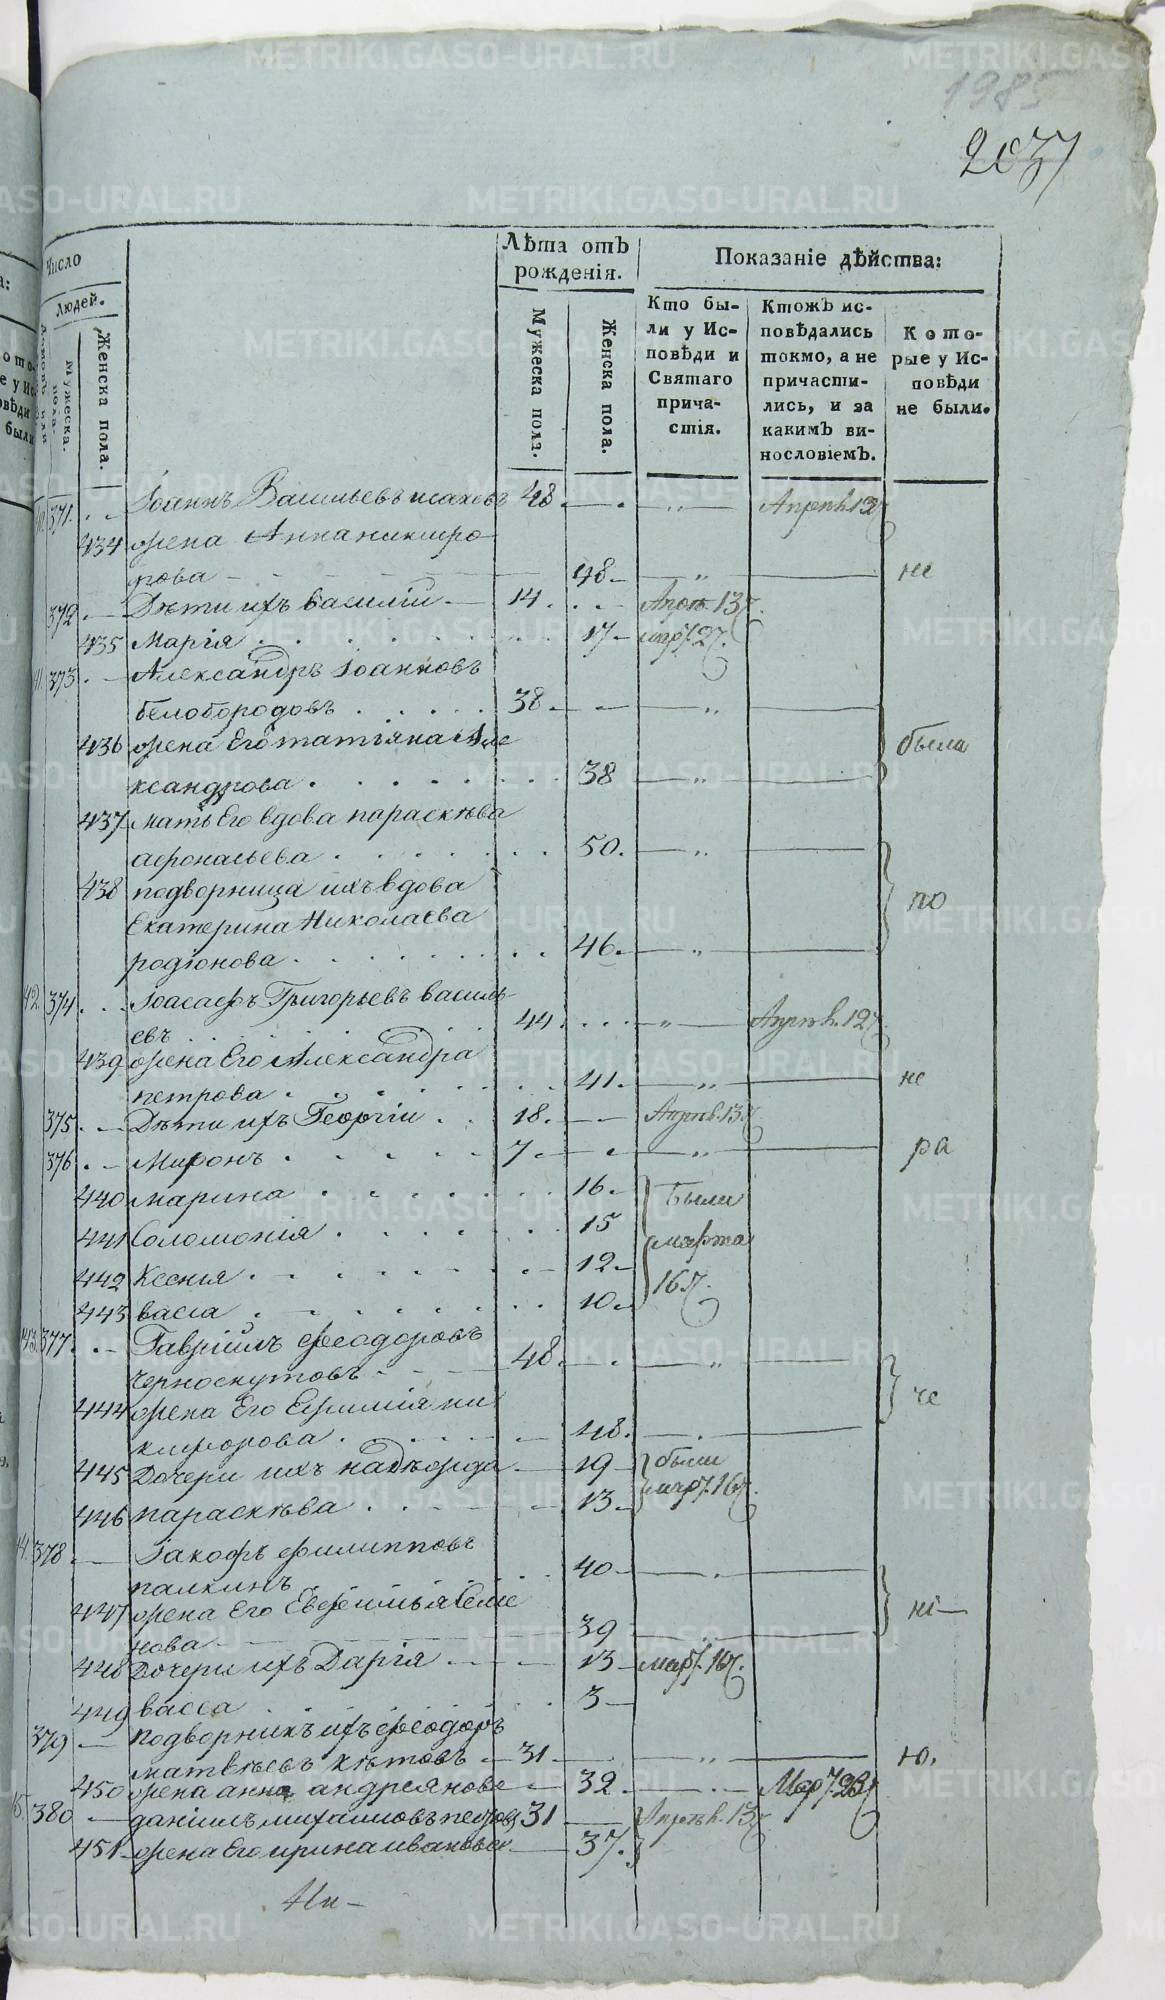 1985
2037
Число
Людей.
Мужеска пола.
Женска пола.
Лѣта отъ рожденія.
Мужеска пола.
Женска пола.
Показаніе дѣйства:
Кто были у Исповѣди и Святаго причастія.
Ктожъ исповѣдались токмо, а не причастились, и за какимъ винословіемъ.
Которые у Исповѣди не были.
371. Іоаннъ Васильевъ 48 Апрѣл. 13
434 жена Анна никифо
рова 48 не
372 Дѣти ихъ василіи 14 Апрѣл. 13
435 Марія 17 мар. 27
373 Александръ Іоанновъ
белобородовъ 38
436 жена Его татіяна Але была
ксандрова 38
437 мать Его вдова параскѣва
афонасьева 50.
438 подворница ихъ вдова по
Екатерина Николаева
родіонова 46
42. 374 Іоасафъ Григорьевъ василь
евъ 44 Апрѣл. 12
439 жена Его Александра
петрова 41. не
375 Дѣти ихъ Георгіи 18. Апрѣл. 13
376 Миронъ 7 ра
440 марина 16 Были
441 Соломонія 15 марта
442 Ксенія 12 16
443 васса 10
43. 377. Гавріилъ феодоровъ
Черноскутовъ 48
444 жена Его Ефимія ни че
кифорова 48.
445 Дочери ихъ надѣжда 19 были
446 параскѣва 13 мар. 16
378 Іаковъ филипповъ
палкинъ 40
447 жена Его Евфимья Семе ні
нова 39
448 Дочери ихъ Дарія 13 мар. 16
449 васса 3
379 подворникъ ихъ феодоръ
матвѣевъ кѣтовъ 31 ю.
450 жена анна андреянова 32 Мар. 23
380 даніилъ михаиловъ 31 Апрѣл. 13
451 жена Его ирина иванова 37.
METRIKI.GASO-URAL.RU